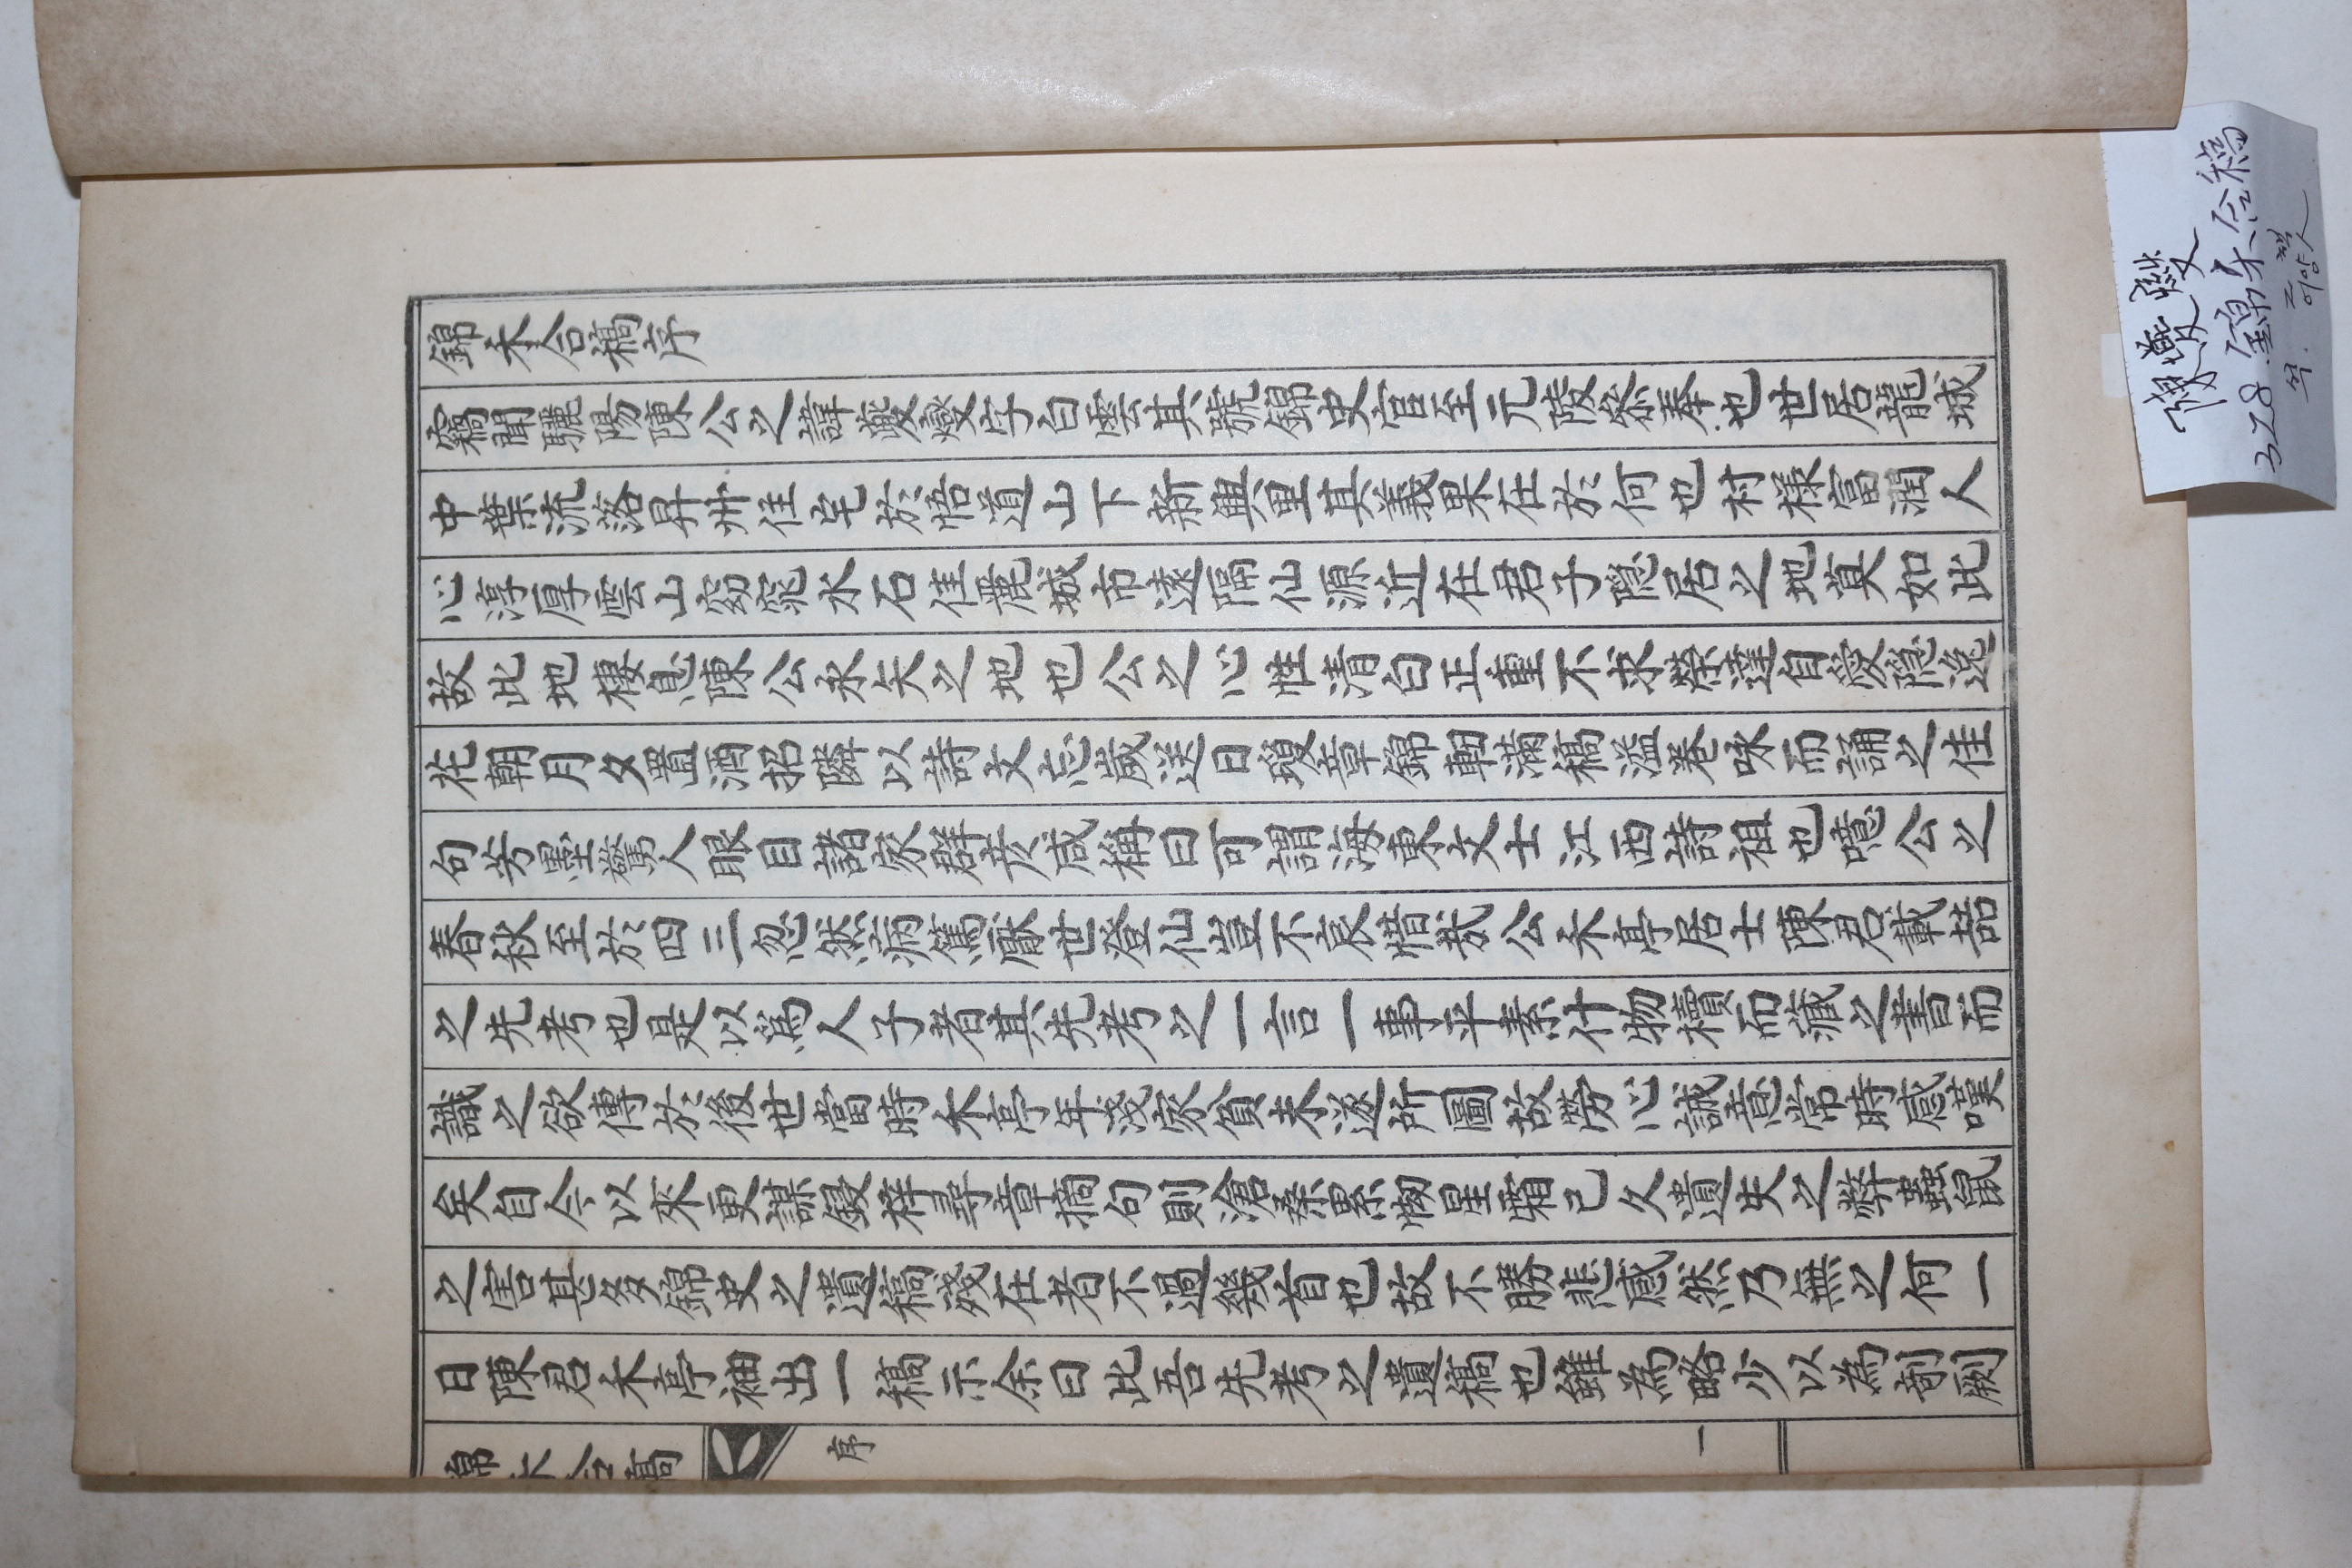 錦禾合稿序
竊聞驪陽陳公之諱夔燮字白雲其號錦史官至元陵叅奉也世居龍城
中葉流落昇州住宅於悟道山下新興里其義果在於何也村樣富潤人
心淳厚雲山窈窕水石佳麗城市遠隔仙源近在君子隐居之地莫如此
故此地棲息陳公永矢之地也公之心性清白正重不求榮達自愛隐逸
花朝月夕置酒招隣以詩文忘歲送日瓊章錦軸滿稿溢卷咏而誦之佳
句芳墨驚人眼目諸家群彦咸稱曰可謂海東文士江西詩祖也噫公之
春秋至於四三忽然病篤厭世登仙豈不哀惜哉公禾亭居士陳君載喆
之先考也是以爲人子者其先考之一言一事平素什物櫝而藏之書而
識之欲傳於後世當時禾亭年淺家貧未遂所圖故勞心誠意常時感嘆
矣自今以來更謀鋟梓尋章摘句則滄桑累㤼星霜已久遺失之弊蟲鼠
之害甚多錦史之遺稿殘在者不過幾首也故不勝悲感然乃無之何一
日陳君禾亭袖出一稿示余曰此吾先考之遺稿也雖為略少以為剞劂
錦禾合稿
序
一
陳夔燮
328.錦禾合稿
석.